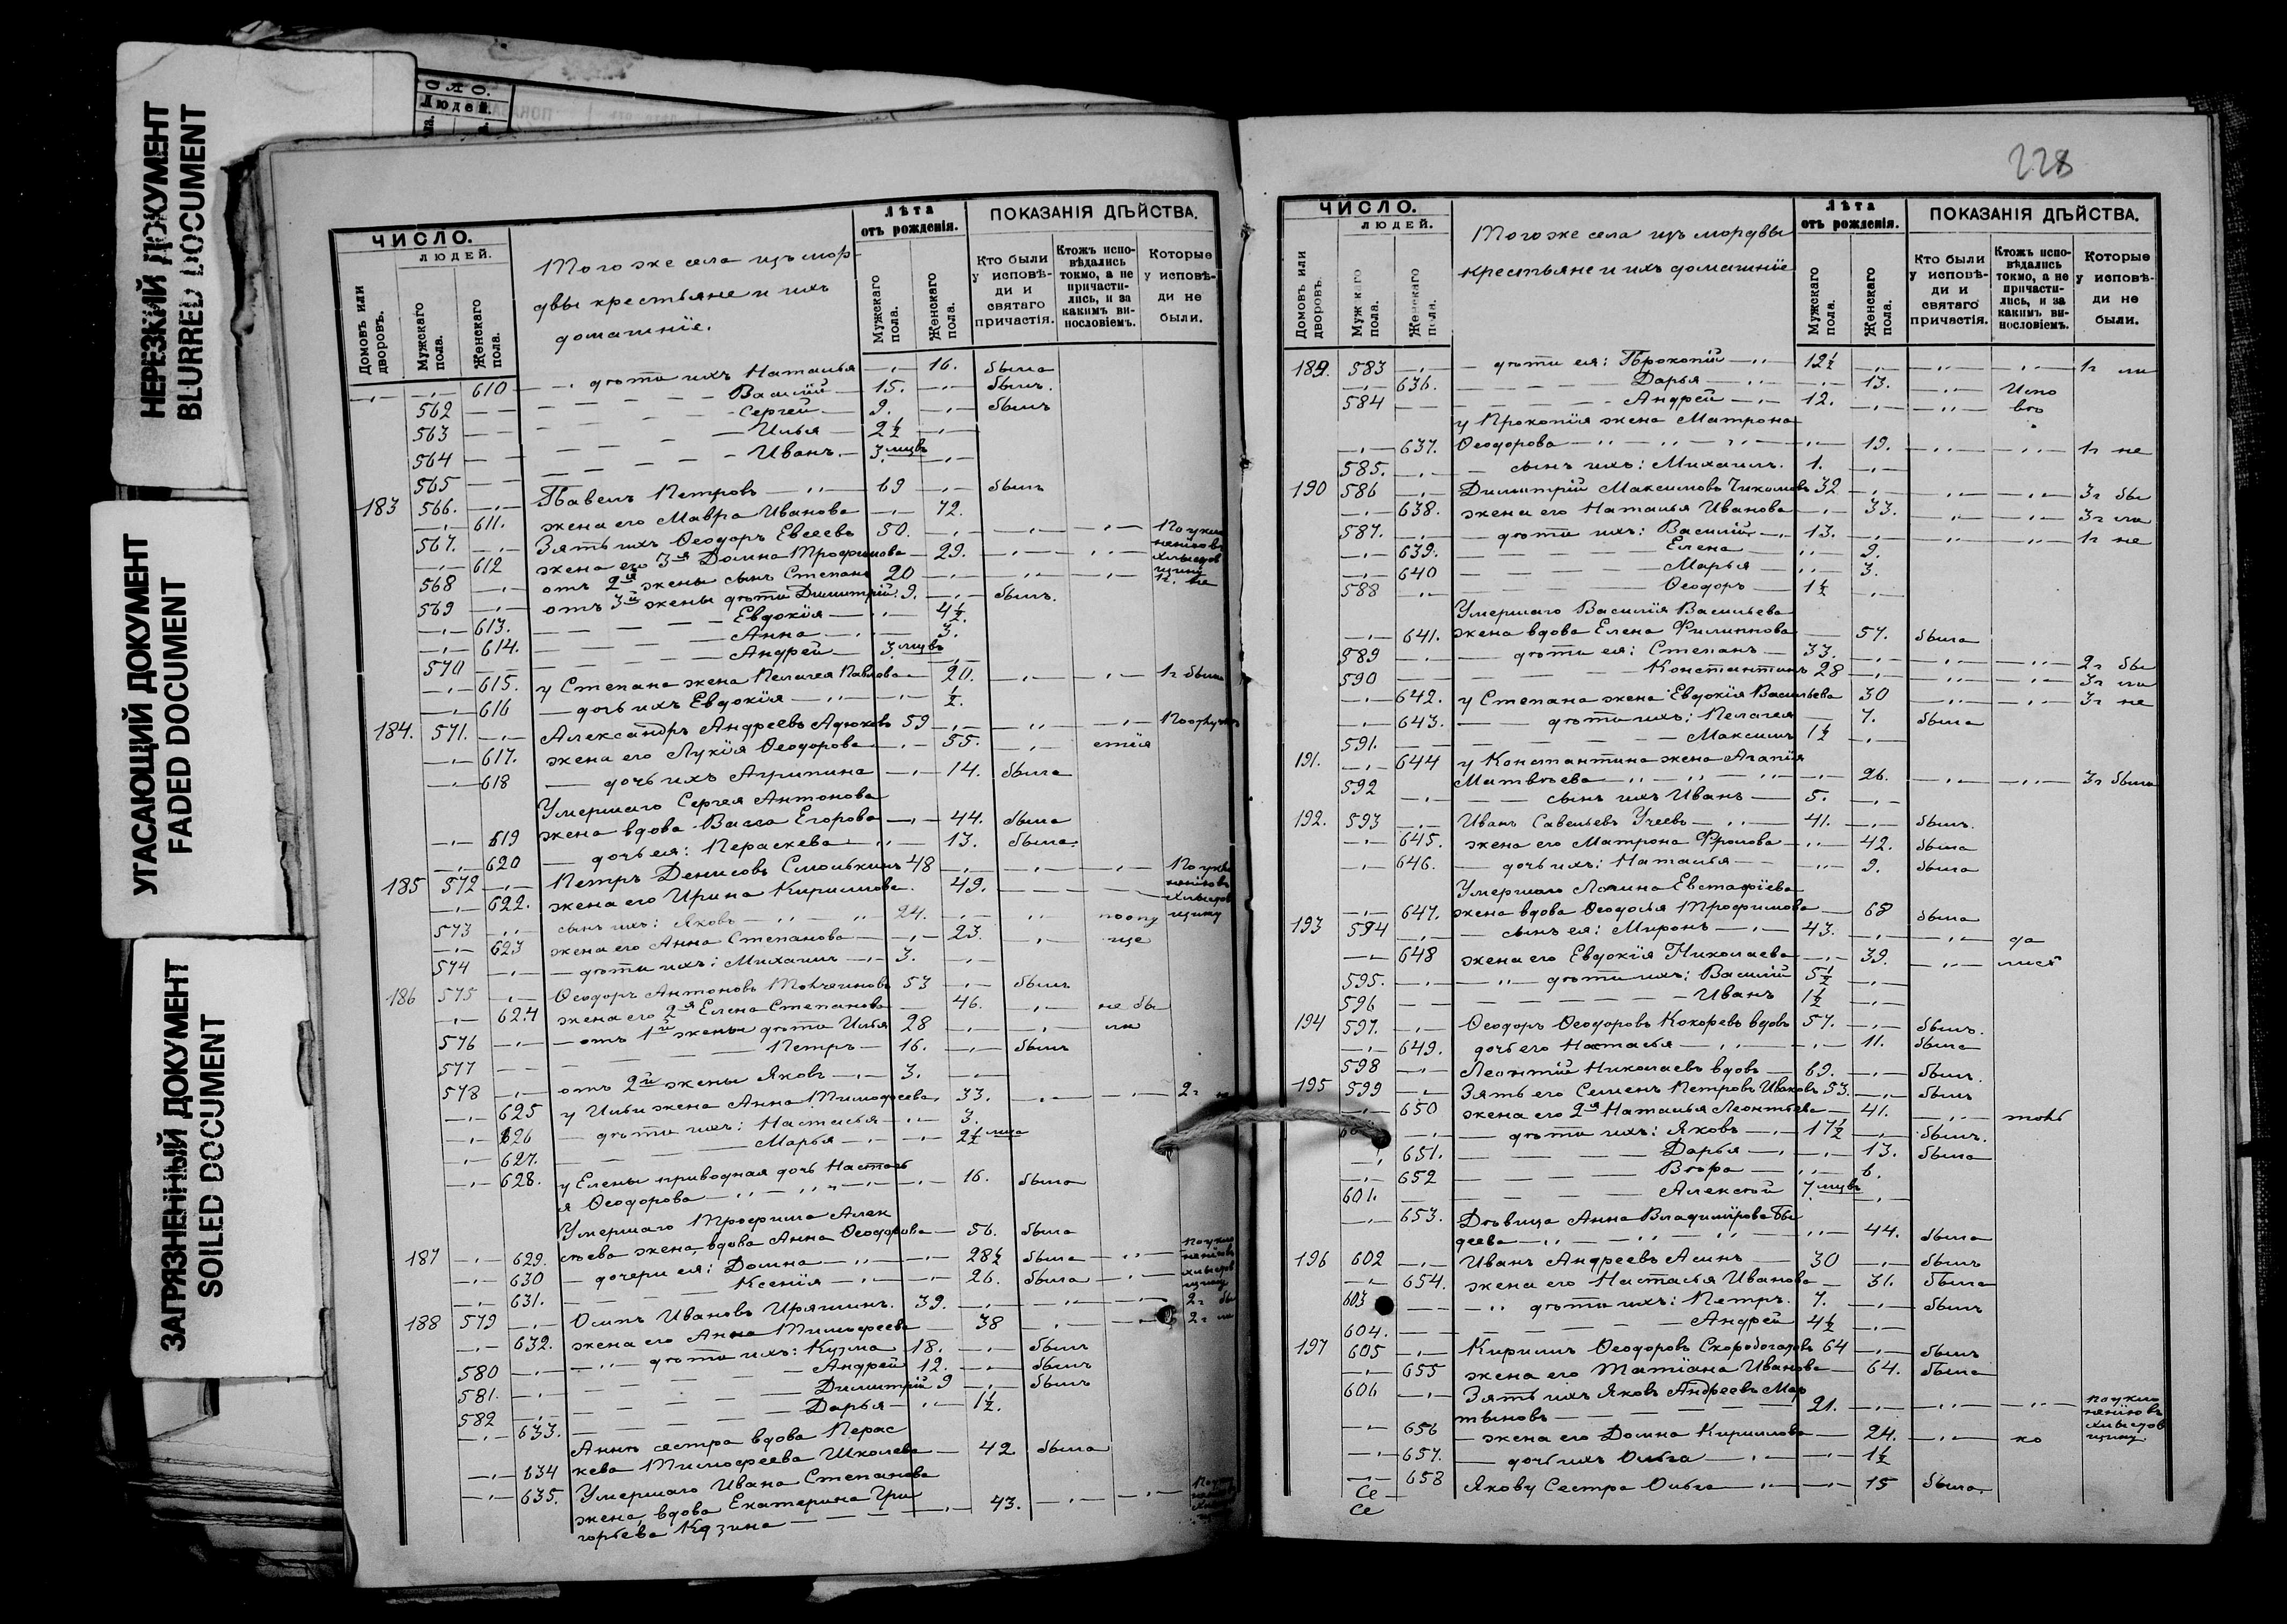 НЕРЕЗКИЙ ДОКУМЕНТ
BLURRED DOCUMENT
УГАСАЮЩИЙ ДОКУМЕНТ
FADED DOCUMENT
ЗАГРЯЗНЕННЫЙ ДОКУМЕНТ
SOILED DOCUMENT
Людей.
ЧИСЛО.
ЛЮДЕЙ.
Домовъ или дворовъ.
Мужскаго пола.
Женскаго пола.
Того же села изъ мор-
двы крестьяне и ихъ
домашніе.
Лѣта
отъ рожденія.
Мужскаго пола.
Женскаго пола.
ПОКАЗАНІЯ ДѢЙСТВА.
Кто были у исповѣ-ди и святаго причастія.
Ктожъ испо-вѣдались токмо, а не причасти-лись, и за какимъ ви-нословіемъ.
Которые у исповѣ-ди не были.
610 дѣти ихъ Наталья 16. была
562 Василій 15. былъ.
563 Сергей 9. былъ
564 Илья 2½
565 Иванъ 3 мцъ
183 566. Павелъ Петровъ 69 былъ
611. жена его Мавра Иванова 72.
567. Зять ихъ Ѳеодоръ Евсеевъ 50.
612 жена его 3я Домна Трофимова 29.
568 отъ 2й жены сынъ Степанъ 20
569 отъ 3й жены дѣти Димитрій 9. былъ.
613. Евдокія 4½.
614. Анна 3.
570 Андрей 3 мцъ
615. у Степана жена Пелагея Павлова 20. 1г была
616 дочь ихъ Евдокія ½.
184. 571. Александръ Андреевъ Адюковъ 59
617. жена его Лукія Ѳеодорова 55.
618 дочь ихъ Агрипина 14. была
Умершаго Сергея Антонова
619 жена вдова Васса Егорова 44. была
620 дочь ея: Параскева 13. была.
185 572 Петръ Денисовъ 48
622. жена его Ирина Кирилова. 49.
573 сынъ ихъ: Яковъ 24.
623 жена его Анна Степанова 23.
574 дѣти ихъ: Михаилъ 3.
186 575 Ѳеодоръ Антоновъ 53 былъ
624 жена его 2я Елена Степанова 46. не бы
576 отъ 1й жены дѣти Илья 28 ли
577 Петръ 16. былъ
578 отъ 2й жены Яковъ 3.
625 у Ильи жена Анна Тимофеева. 33. 2г
626 дѣти ихъ: Настасья 3.
627. Марья 2½ мца
628. у Елены приводная дочь Настась
я Ѳеодорова 16. была
Умершаго Трофима Алек
187 629. сѣева жена, вдова Анна Ѳеодорова 56. была
630 дочери ея: Домна 28½ была
631. Ксенія 26. была
188 579 Осипъ Ивановъ Иряшинъ. 39. 2г бы
632. жена его Анна Тимофеева 38 2г ли
580 дѣти ихъ: Кузма 18. былъ
581. Андрей 12. былъ
582 Димитрій 9 былъ
633. Дарья 1½.
Анны сестра вдова Парас
634 кева Тимофеева Школева 42 была
635. Умершаго Ивана Степанова
жена, вдова Екатерина Гри
горьева Кузина 43.
228
ЧИСЛО.
ЛЮДЕЙ.
Домовъ или дворовъ.
Мужскаго пола.
Женскаго пола.
Того же села изъ мордвы
крестьяне и ихъ домашніе
Лѣта
отъ рожденія.
Мужскаго пола.
Женскаго пола.
ПОКАЗАНІЯ ДѢЙСТВА.
Кто были у исповѣ-ди и святаго причастія.
Ктожъ испо-вѣдались токмо, а не причасти-лись, и за какимъ ви-нословіемъ.
Которые у исповѣ-ди не были.
189. 583 дѣти ея: Прокопій 12½ 1г ли
636. Дарья 13. Испо
584 Андрей 12. вѣо
у Прокопія жена Матрона
637. Ѳеодорова 19. 1г не
585. сынъ ихъ: Михаилъ. 1.
190 586 Димитрій Максимовъ Чиколовъ 32 3г бы
638. жена его Наталья Иванова 33. 3г ли
587. дѣти ихъ: Василій 13. 1г не
639. Елена 9.
640 Марья 3.
588 Ѳеодоръ 1½
Умершаго Василія Васильева
641. жена вдова Елена Филиппова 57. была
589 дѣти ея: Степанъ 33. 2г бы
590 Константинъ 28 3г ли
642. у Степана жена Евдокія Васильева 30 3г не
643. дѣти ихъ: Пелагея 7. была
591. Максимъ 1½
191. 644 у Константина жена Агапія
592 Матвѣева 26. 3г была
сынъ ихъ Иванъ 5.
192. 593 Иванъ Савельевъ Учеевъ 41. былъ.
645. жена его Матрона Фролова 42. была
646. дочь ихъ: Наталья 9. была
Умершаго Логина Евстафіева
647. жена вдова Ѳеодосья Трофимова 68 была
193 594 сынъ ея: Миронъ 43. да
648 жена его Евдокія Николаева 39. лись
595. дѣти ихъ: Василій 5½
596 Иванъ 1½
194 597. Ѳеодоръ Ѳеодоровъ Кокоревъ вдовъ 57. былъ.
649. дочь его Настасья 11. была
598 Леонтій Николаевъ вдовъ 69. былъ.
195 599 Зять его Семенъ Петровъ Иваковъ 53. былъ
650 жена его 2я Наталья Леонтьева 41. токъ
дѣти ихъ: Яковъ 17½ былъ.
651. Дарья 13. была
652 Вѣра 6.
601. Алексѣй 7 мцъ
653. Дѣвица Анна Владимірова Бы
деева 44. была
196 602 Иванъ Андреевъ Асинъ 30 былъ
654. жена его Настасья Иванова 31. была
603 дѣти ихъ: Петръ. 7. былъ
604. Андрей 4½
197 605 Кирилъ Ѳеодоровъ Скоробогатовъ 64 былъ
655 жена его Татіана Иванова 64. была
606 Зять ихъ Яковъ Андреевъ Мар
тыновъ 21.
656 жена его Домна Кирилова 24. ко
657. дочь ихъ Ольга 1½
658 Якову Сестра Ольга 15 была.
Се
Се